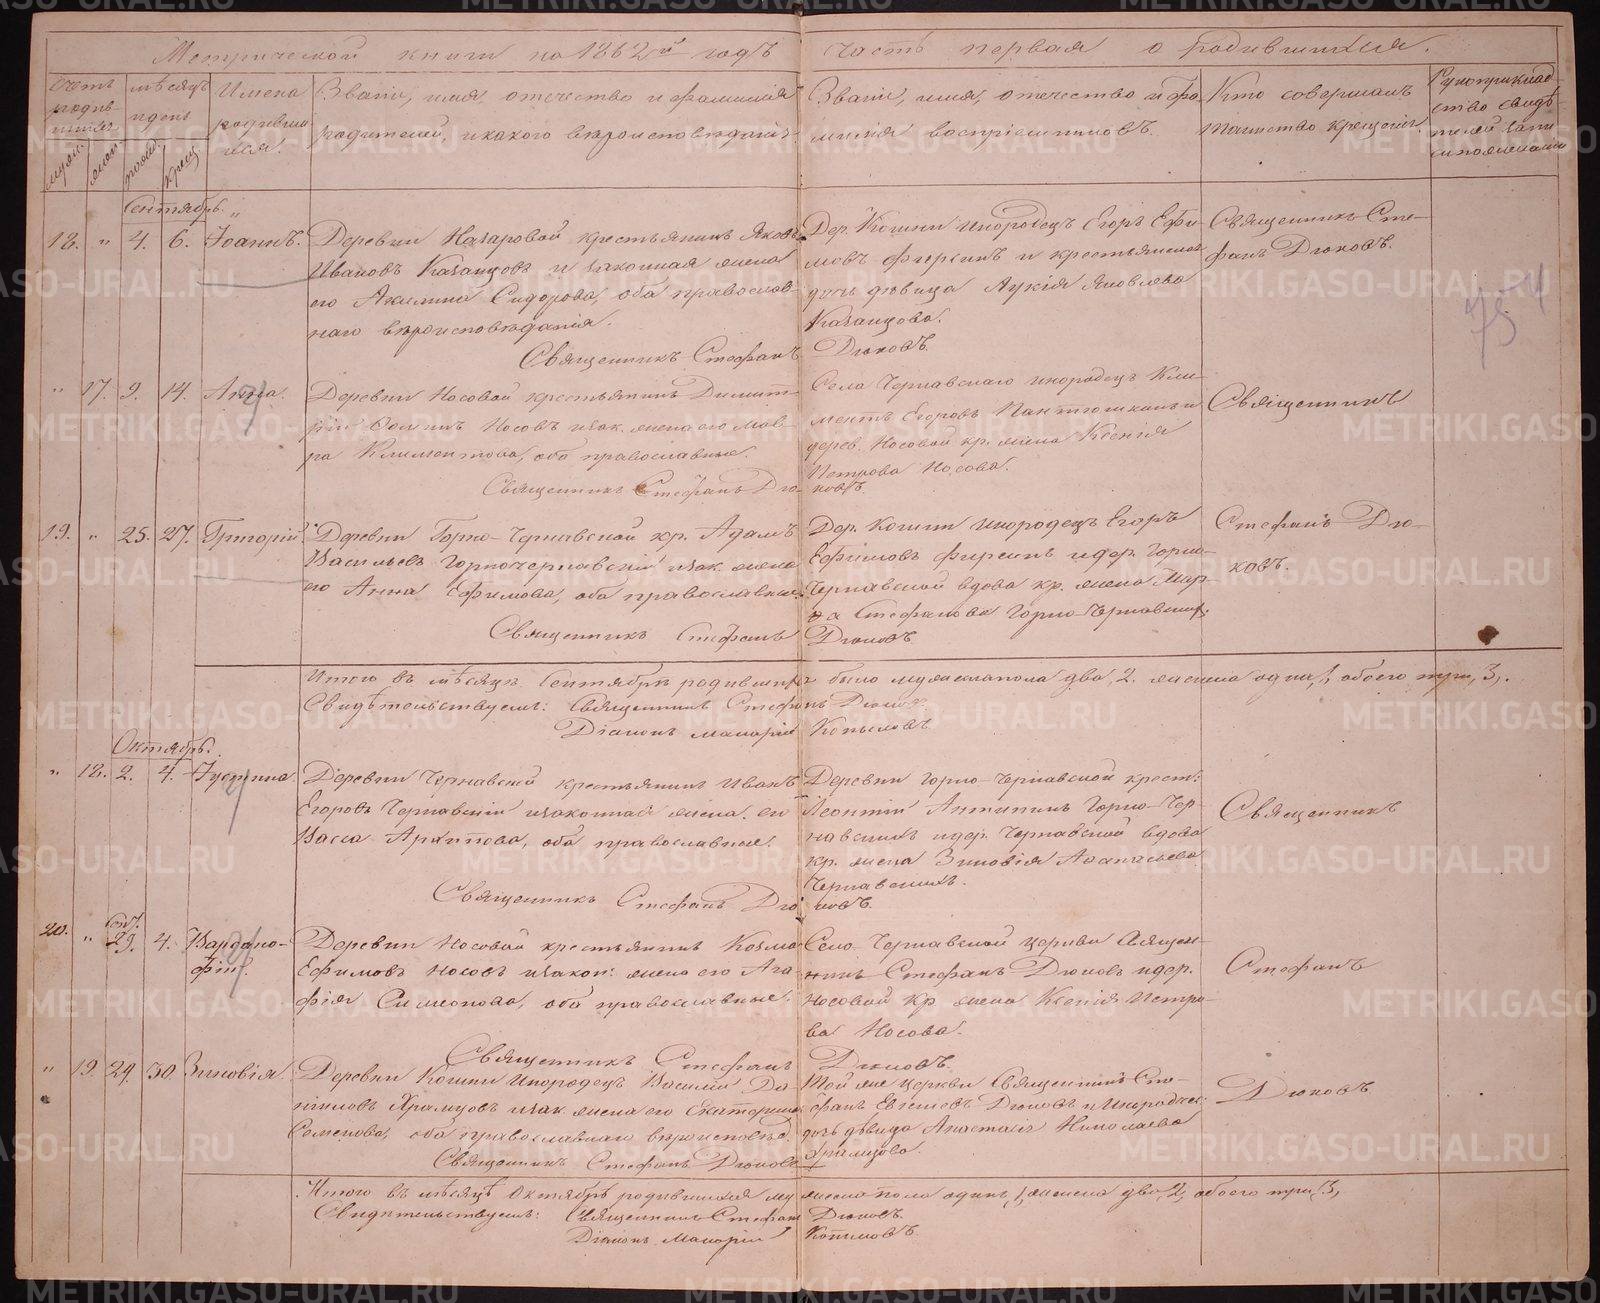 Метрической книги на 1862й годъ часть первая о родившихся.
Счетъ родившихся
мѣсяцъ и день
Имена родившихся.
Званіе, имя, отечество и фамилія родителей, и какого вѣроисповѣданія.
Званіе, имя, отечество и фамилія воспріемниковъ.
Кто совершалъ таинство крещенія.
Рукоприкладство свидѣтелей записи по желанію
муж. жен. рожд. крещ.
Сентябрь.
18. " 4. 6. Іоаннъ.
Деревни Назаровой крестьянинъ Яковъ
Ивановъ Казанцовъ и законная жена
его Акилина Сидорова, оба православ-
наго вѣроисповѣданія.
Священникъ Стефанъ Дюковъ.
Дер. Кошни инородецъ Егоръ Ефи-
мовъ Фирсинъ и крестьянская
дочь дѣвица Лукія Яковлева
Казанцова.
Священникъ Сте-
фанъ Дюковъ.
" 17. 9. 14. Анна.
Деревни Носовой крестьянинъ Димит-
рій Ѳоминъ Носовъ и зак. жена его Мав-
ра Климентова, оба православные.
Священникъ Стефанъ Дюковъ.
Села Чернавскаго инородецъ Кли-
ментъ Егоровъ Пантюшкинъ и
дерев. Носовой кр. жена Ксенія
Петрова Носова.
Священникъ
19. " 25. 27. Григорій.
Деревни Горно-Чернавской кр. Адамъ
Васильевъ Горночернавскій и зак. жена
его Анна Ефимова, оба православные.
Священникъ Стефанъ Дюковъ
Дер. Кошни инородецъ Егоръ
Ефимовъ Фирсинъ и дер. Горно-
Чернавской вдова кр. жена Мар-
ѳа Стефанова Горно-Чернавских.
Стефанъ Дю-
ковъ.
Итого въ мѣсяцѣ Сентябрѣ родившихся было мужска пола два, 2. женска одна, 1, обоего три, 3,.
Свидѣтельствуемъ: Священникъ Стефанъ Дюковъ.
Діаконъ Макарій Копыловъ
Октябрь.
" 18. 2. 4. Іустина
Деревни Чернавской крестьянинъ Иванъ
Егоровъ Чернавскій и законная жена его
Васса Архипова, оба православные.
Священникъ Стефанъ Дюковъ.
Деревни Горно-Чернавской крест:
Леонтій Антипинъ Горно-Чер-
навскихъ и дер. Чернавской вдова
кр. жена Зиновія Анань­ева
Чернавскихъ.
Священникъ
20. " Сент. 29. 4. Вардано-
фій.
Деревни Носовой крестьянинъ Козма
Ефимовъ Носовъ и закон: жена его Ага-
фія Симеонова, оба православные.
Священникъ Стефанъ Дюковъ.
Село-Чернавской церкви Священ-
никъ Стефанъ Дюковъ и дер.
Носовой кр. жена Ксенія Петро-
ва Носова.
Стефанъ
" 19. 29. 30. Зиновія.
Деревни Кошни Инородецъ Василій Да-
ниловъ Храмцовъ и зак. жена его Екатерина
Семенова, оба православнаго вѣроисповѣд.
Священникъ Стефанъ Дюковъ
Той же церкви Священникъ Сте-
фанъ Евгеніевъ Дюковъ и Инородческ:
дочь дѣвица Анастасія Николаева
Храмцова.
Дюковъ
Итого въ мѣсяцѣ Октябрѣ родившихся мужеска пола одинъ, 1, женска два, 2, обоего три, 3,
Свидѣтельствуемъ: Священникъ Стефанъ Дюковъ.
Діаконъ Макарій Копыловъ
METRIKI.GASO-URAL.RU